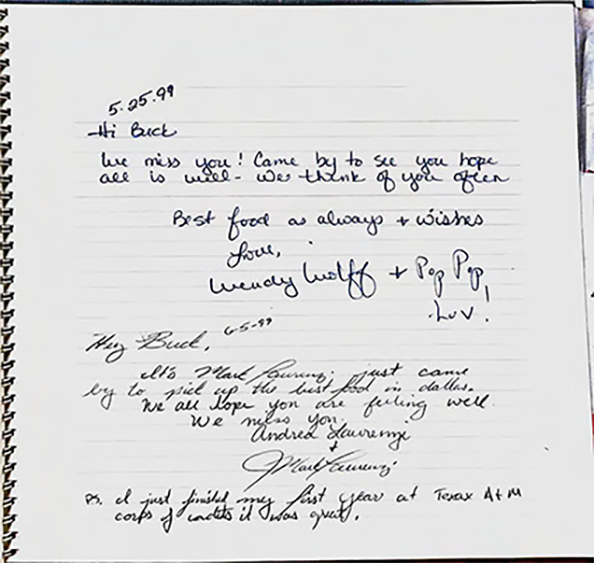 5.25.99
Hi Buck
We miss you! Came by to see you hope
all is well - We think of you often
Best food as always + wishes
Love,
Wendy Wolff + Pop Pop
Luv!
Hey Buck, 6-5-99
It's Mark Laurenzi just came
by to pick up the best food in dallas.
We all hope you are feeling well
We miss you
Andrea Laurenzi
+
Mark Laurenzi
P.S. I just finished my first year at Texax A+M
corps of cadets it was great.